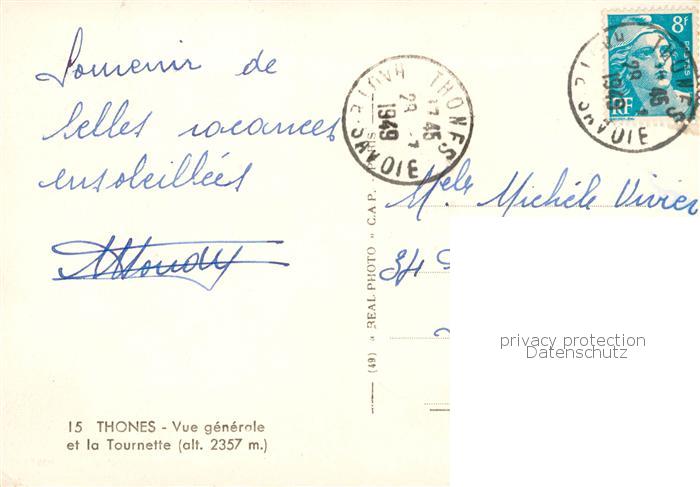 Souvenir de
belles vacances
ensoleillées
15 THONES - Vue générale
et la Tournette (alt. 2357 m.)
(49) « REAL PHOTO » C.A.P.
THONES
17 45
29 - 7
1949
HAUTE-SAVOIE
8F
POSTES
RF
THONES
45
29
1949
E-SAVOIE
Melle Michèle Vivier
34
privacy protection
Datenschutz